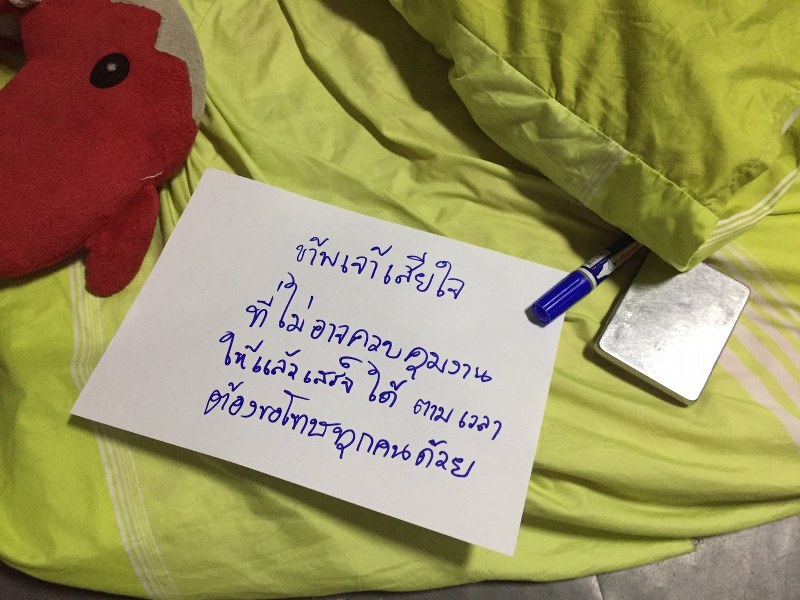 ข้าพเจ้าเสียใจ
ที่ไม่อาจควบคุมงาน
ให้แล้วเสร็จ ได้ ตามเวลา
ต้องขอโทษทุกคนด้วย